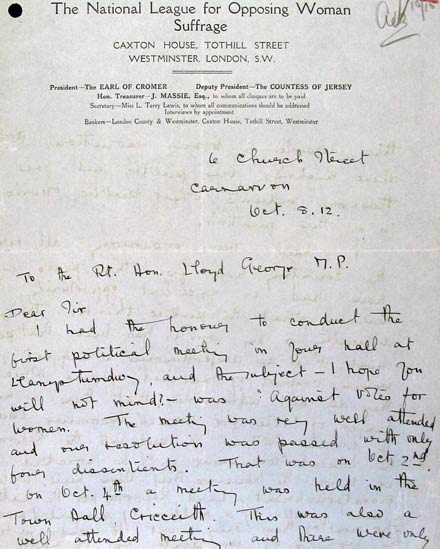 The National League for Opposing Woman
Suffrage
CAXTON HOUSE, TOTHILL STREET
WESTMINSTER, LONDON, S.W.
President—The EARL OF CROMER Deputy President—The COUNTESS OF JERSEY
Hon. Treasurer—J. MASSIE, Esq., to whom all cheques are to be paid
Secretary—Miss L. Terry Lewis, to whom all communications should be addressed
Interviews by appointment
Bankers—London County & Westminster, Caxton House, Tothill Street, Westminster
Ack
6 Church Street
Carnarvon
Oct. 8.12.
To the Rt. Hon. Lloyd George M.P.
Dear Sir
I had the honour to conduct the
first political meeting in your hall at
Llanystumdwy, and the subject - I hope you
will not mind? - was "Against Votes for
women. The meeting was very well attended
and our resolution was passed with only
four dissentients. That was on Oct 2nd.
on Oct. 4th a meeting was held in the
Town Hall Criccieth. This was also a
well attended meeting and there were only